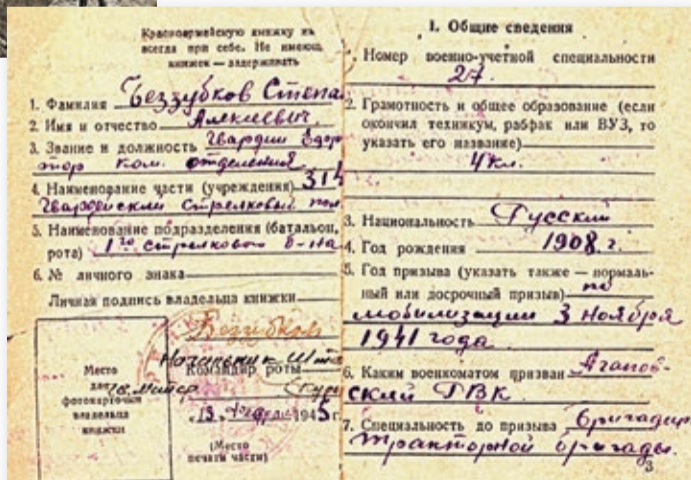 Красноармейскую книжку иметь
всегда при себе. Не имеющ
книжек — задерживать
1. Фамилия Беззубков Степа
2. Имя и отчество
3. Звание и должность Гвардии
ком. отделения
4. Наименование части (учреждения) 314
Гвардейский Стрелковый пол
5. Наименование подразделения (батальон,
рота) 1го стрелкового б-на
6. № личного знака
Личная подпись владельца книжки
Беззубков
Начальник Шта
Командир роты
Место
для
фотокарточки
владельца
книжки
1945 г.
(Место
печати части)
I. Общие сведения
1. Номер военно-учетной специальности
27.
2. Грамотность и общее образование (если
окончил техникум, рабфак или ВУЗ, то
указать его название)
4 кл.
3. Национальность Русский
4. Год рождения 1908 г.
5. Год призыва (указать также — нормаль-
ный или досрочный призыв) по
мобилизации 3 ноября
1941 года
6. Каким военкоматом призван Агапов-
ский РВК
7. Специальность до призыва бригадир
тракторной бригады.
3